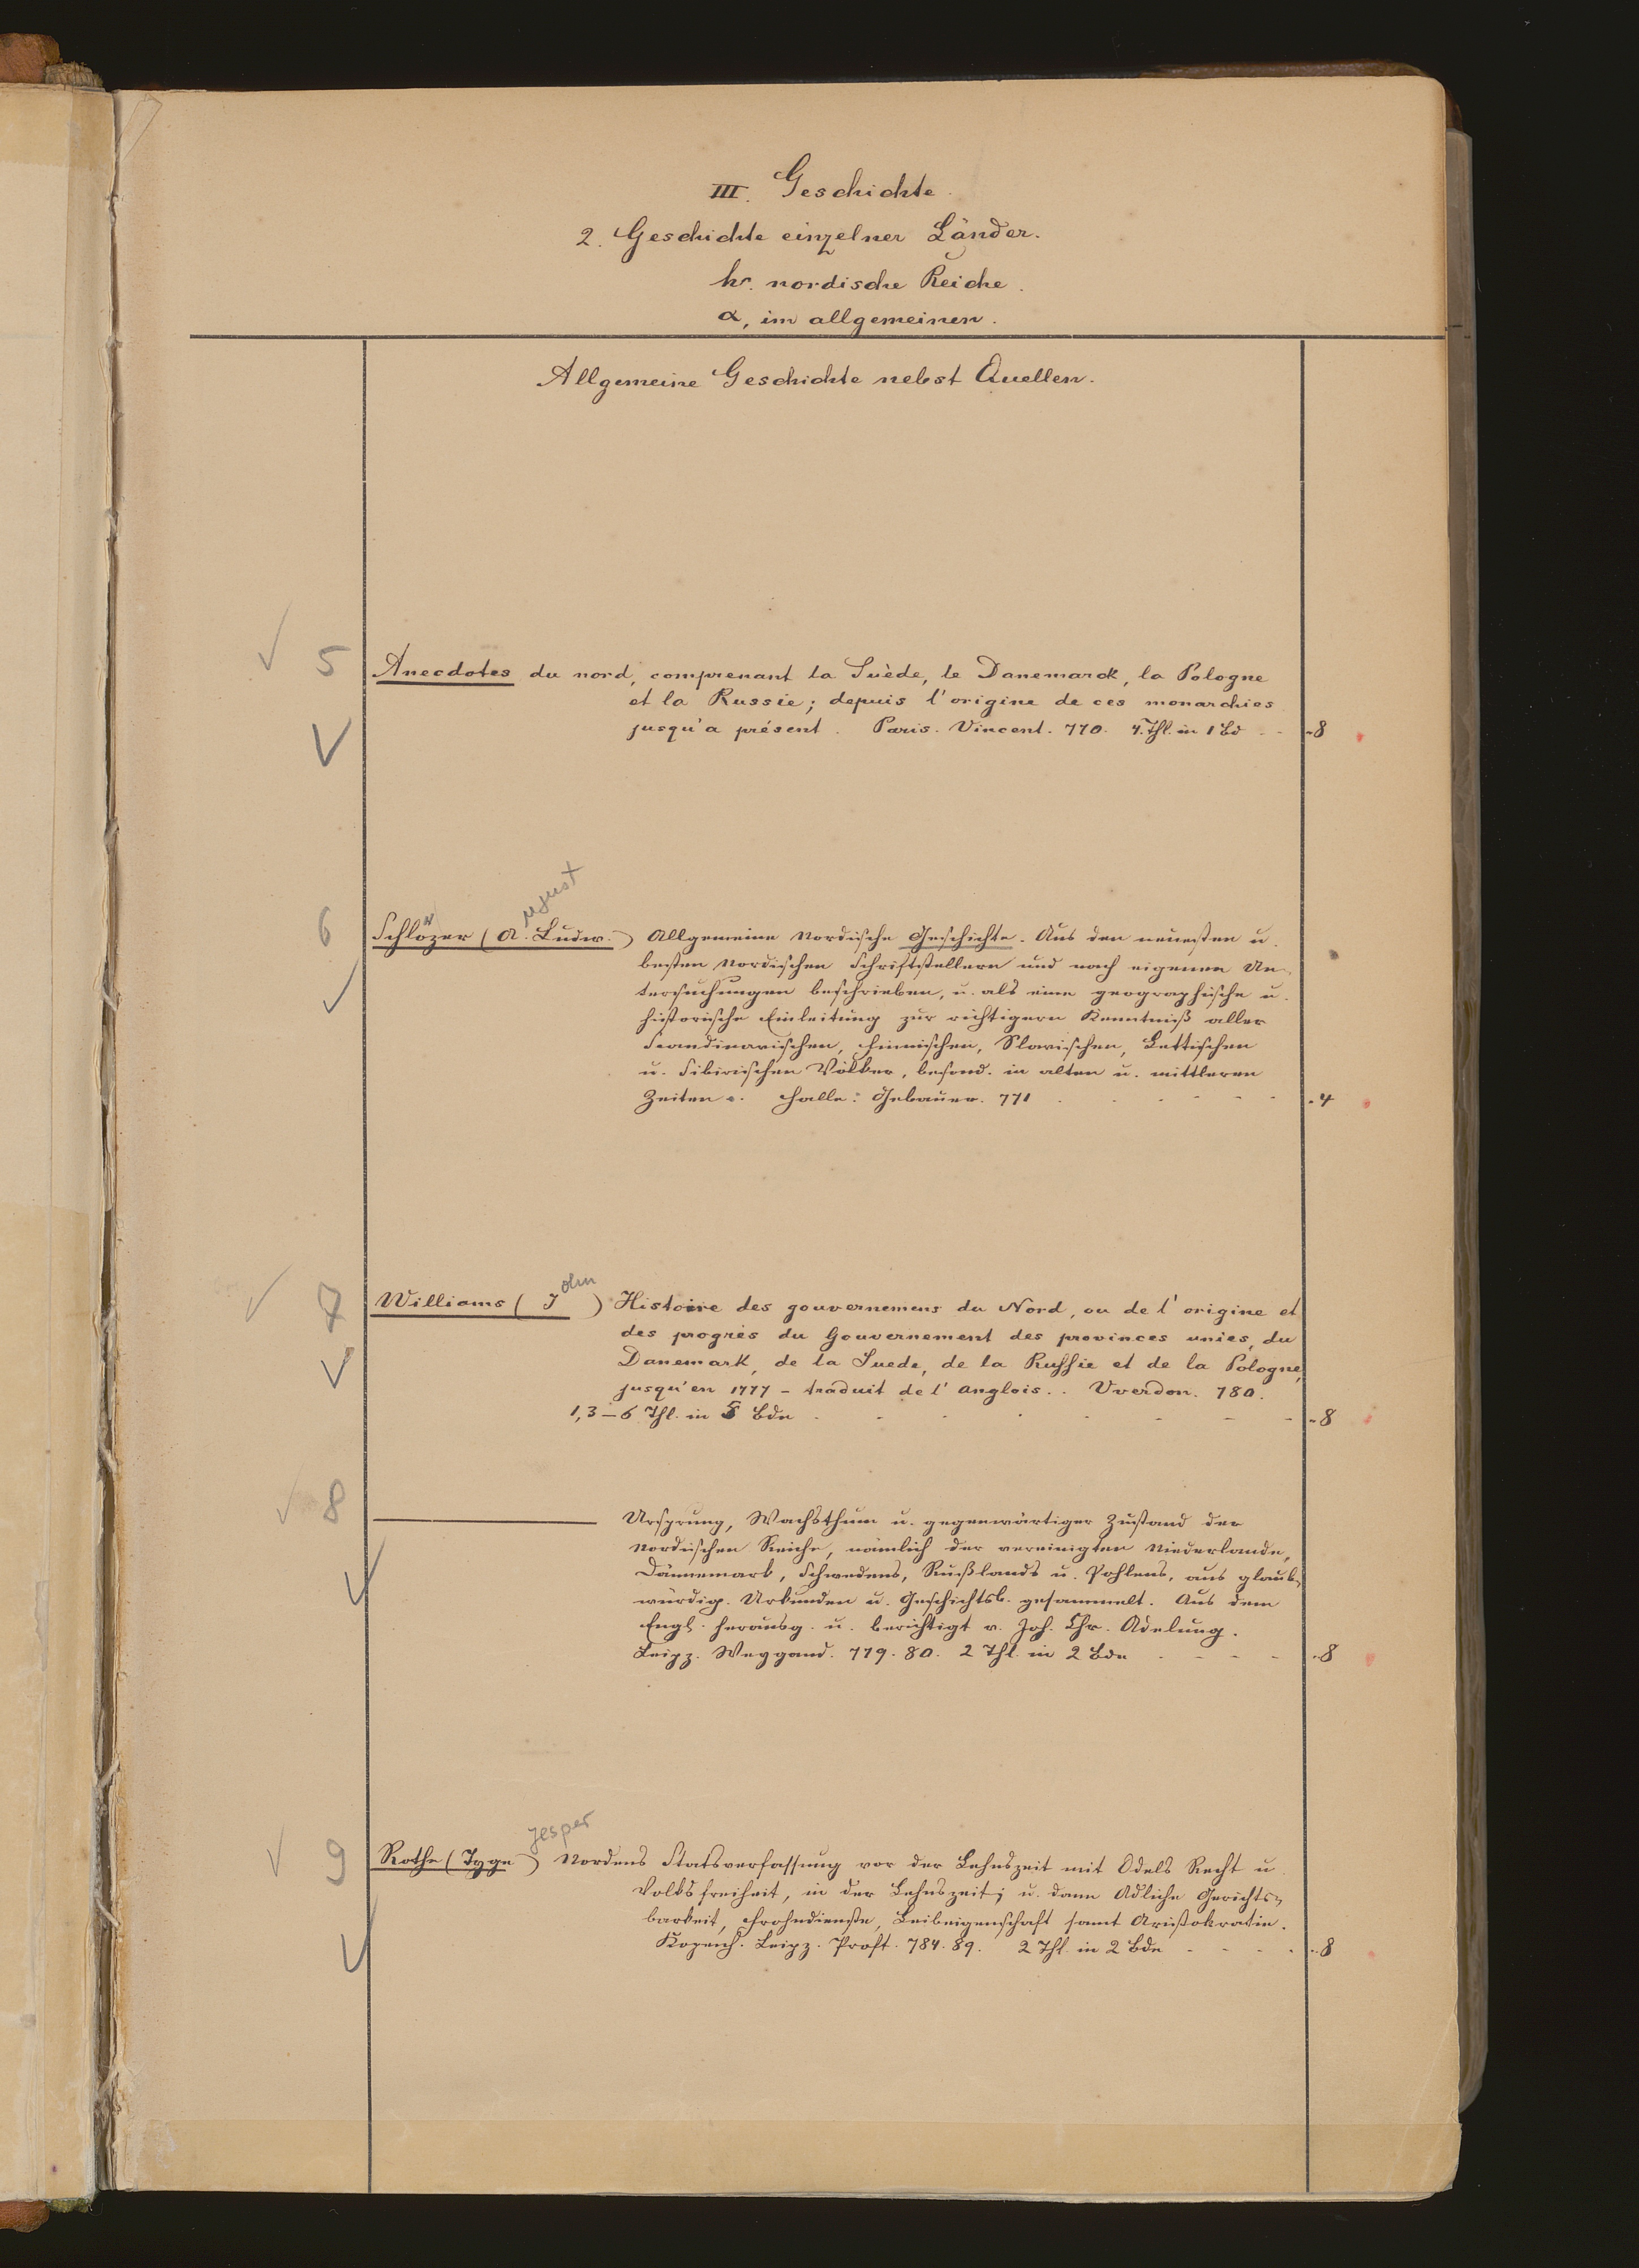 III. Geschichte
2. Geschichte einzelner Länder.
h. nordische Reiche.
α, im allgemeinen.
Allgemeine Geschichte nebst Quellen.
5 Anecdotes du nord, comprenant la Suède, le Danemarck, la Pologne
et la Russie; depuis l'origine de ces monarchies
jusqu'a présent. Paris. Vincent. 770. 4. Thl. in 1 Bd - 8
ugust
6 Schlözer (A. Ludw.) Allgemeine Nordische Geschichte. Aus den neuesten u.
besten Nordischen Schriftstellern und nach eigenen Un-
tersuchungen beschrieben, u. als eine geographische u.
historische Einleitung zur richtigern Kenntniß aller
Scandinavischen, Finnischen, Slavischen, Lettischen
u. Sibirischen Völker, besond. in alten u. mittleren
Zeiten. Halle: Gebauer. 771 . 4
ohn
7 Williams (J ) Histoire des gouvernemens du Nord, ou de l'origine et
des progrès du Gouvernement des provinces unies, du
Danemark, de la Suede, de la Russie et de la Pologne,
jusqu'en 1777 - traduit de l'anglois.. Yverdon. 780.
1,3-6 Thl. in 5 Bdn - 8
8 ——— Ursprung, Wachsthum u. gegenwärtiger Zustand der
nordischen Reiche, nämlich der vereinigten Niederlande,
Dännemark, Schwedens, Rußlands u. Pohlens, aus glaub-
würdig. Urkunden u. Geschichtsb. gesammelt. Aus dem
Engl. herausg. u. berichtigt v. Joh. Chr. Adelung.
Leipz. Weygand. 779. 80. 2 Thl. in 2 Bdn - 8
Jesper
9 Rothe (Tyge ) Nordens Statsverfassung vor der Lehnszeit mit Odels Recht u.
Volksfreiheit, in der Lehnszeit; u. dann Adliche Gerichts-
barkeit, Frohndienste, Leibeigenschaft samt Aristokratie.
Kopenh. Leipz. Proft. 784. 89. 2 Thl. in 2 Bdn - 8